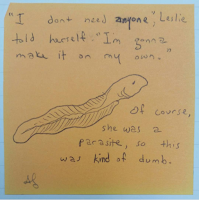 "I don't need anyone", Leslie
told herself. "I'm gonna
make it on my own."
Of course,
she was a
parasite, so this
was kind of dumb.